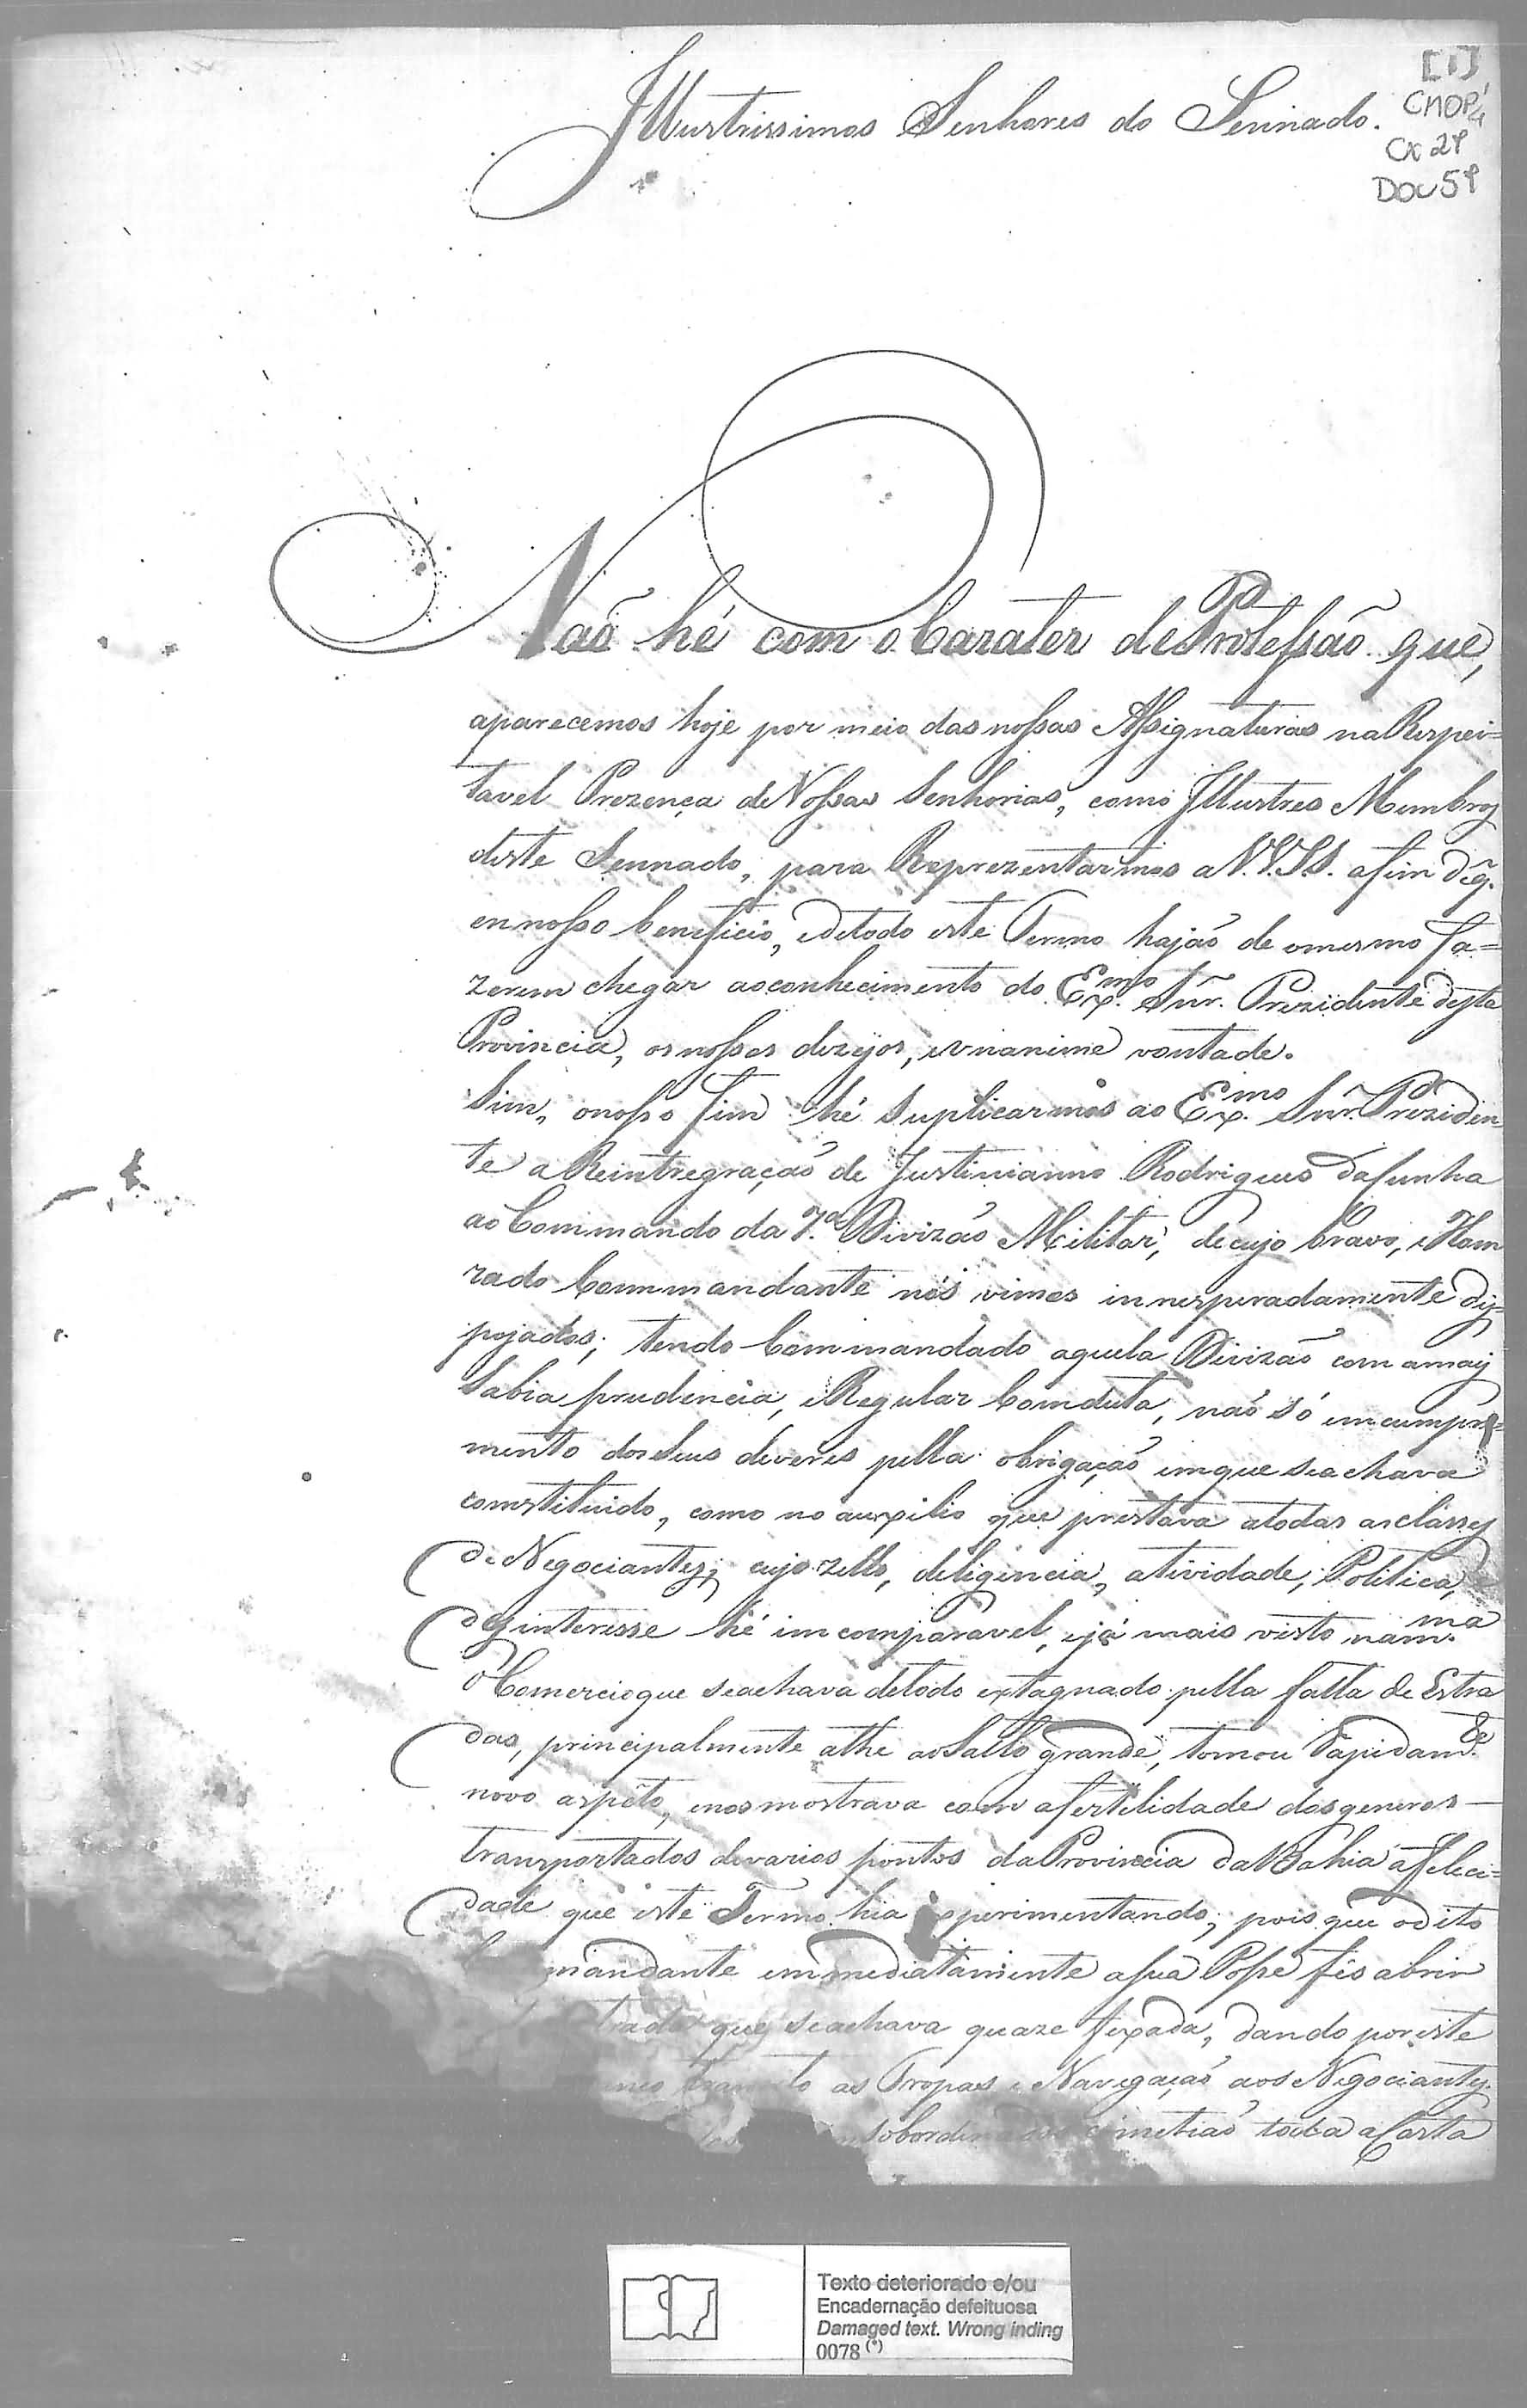 [1]
CMOP
Cx 29
DOC 59
Illustrissimos Senhores do Sennado.
Naõ hé com o Carater de Proteſsão que,
aparecemos hoje por meio das noſsas Aſsignaturas na Respei=
tavel Prezença de Voſsas Senhorias, como Illustres Membros
deste Sennado, para Reprezentarmos a V.V.S.S. afim dẽ q.
em noſso beneficio, e de todo este Termo hajaõ de o mesmo fa=
zerem chegar ao conhecimento do Ex.mo Snr. Prezidente desta
Provincia, os noſsos dezejos, e vnanime vontade.
Sim, o noſso fim hé Suplicarmos ao Ex.mo Snr. Preziden
te a Reintregraçaõ de Justinianno Rodrigues da Cunha
ao Commando da 7.a Divizaõ Militar, de cujo bravo, e Hom
rado Commandante nós vimos innesperadamente dis=
pojados; tendo Commandado aquela Divizaõ com a mais
Sabia prudencia, e Regular Comduta, naõ só em cumpri=
mento dos Seus deveres pella obrigaçaõ em que se achava
comstituido, como no auxilio que prestava a todas as classes
de Negociantes; cujo zello, deligencia, atividade, Politica, e
dezinteresse hé imcomparavel, e já mais visto nam.ma
O Comercio que se achava de todo extagnado pella falta de Estra
das, principalmente athe ao Salto grande, tomou Rapidam.te
novo aspéto, e nos mostrava com a fertilidade dos generos
transportados de varios pontos da Provincia da Bahia a feleci=
dade que este Termo hia experimentando; pois que o dito
mandante immediatamente a sua Poſse fés abrir
trada que se achava quaze fexada, dando por este
as Tropas e Navegaçaõ aos Negociantes.
cometiaõ toda a Casta
Texto deteriorado e/ou
Encadernação defeituosa
Damaged text. Wrong inding
0078 (*)